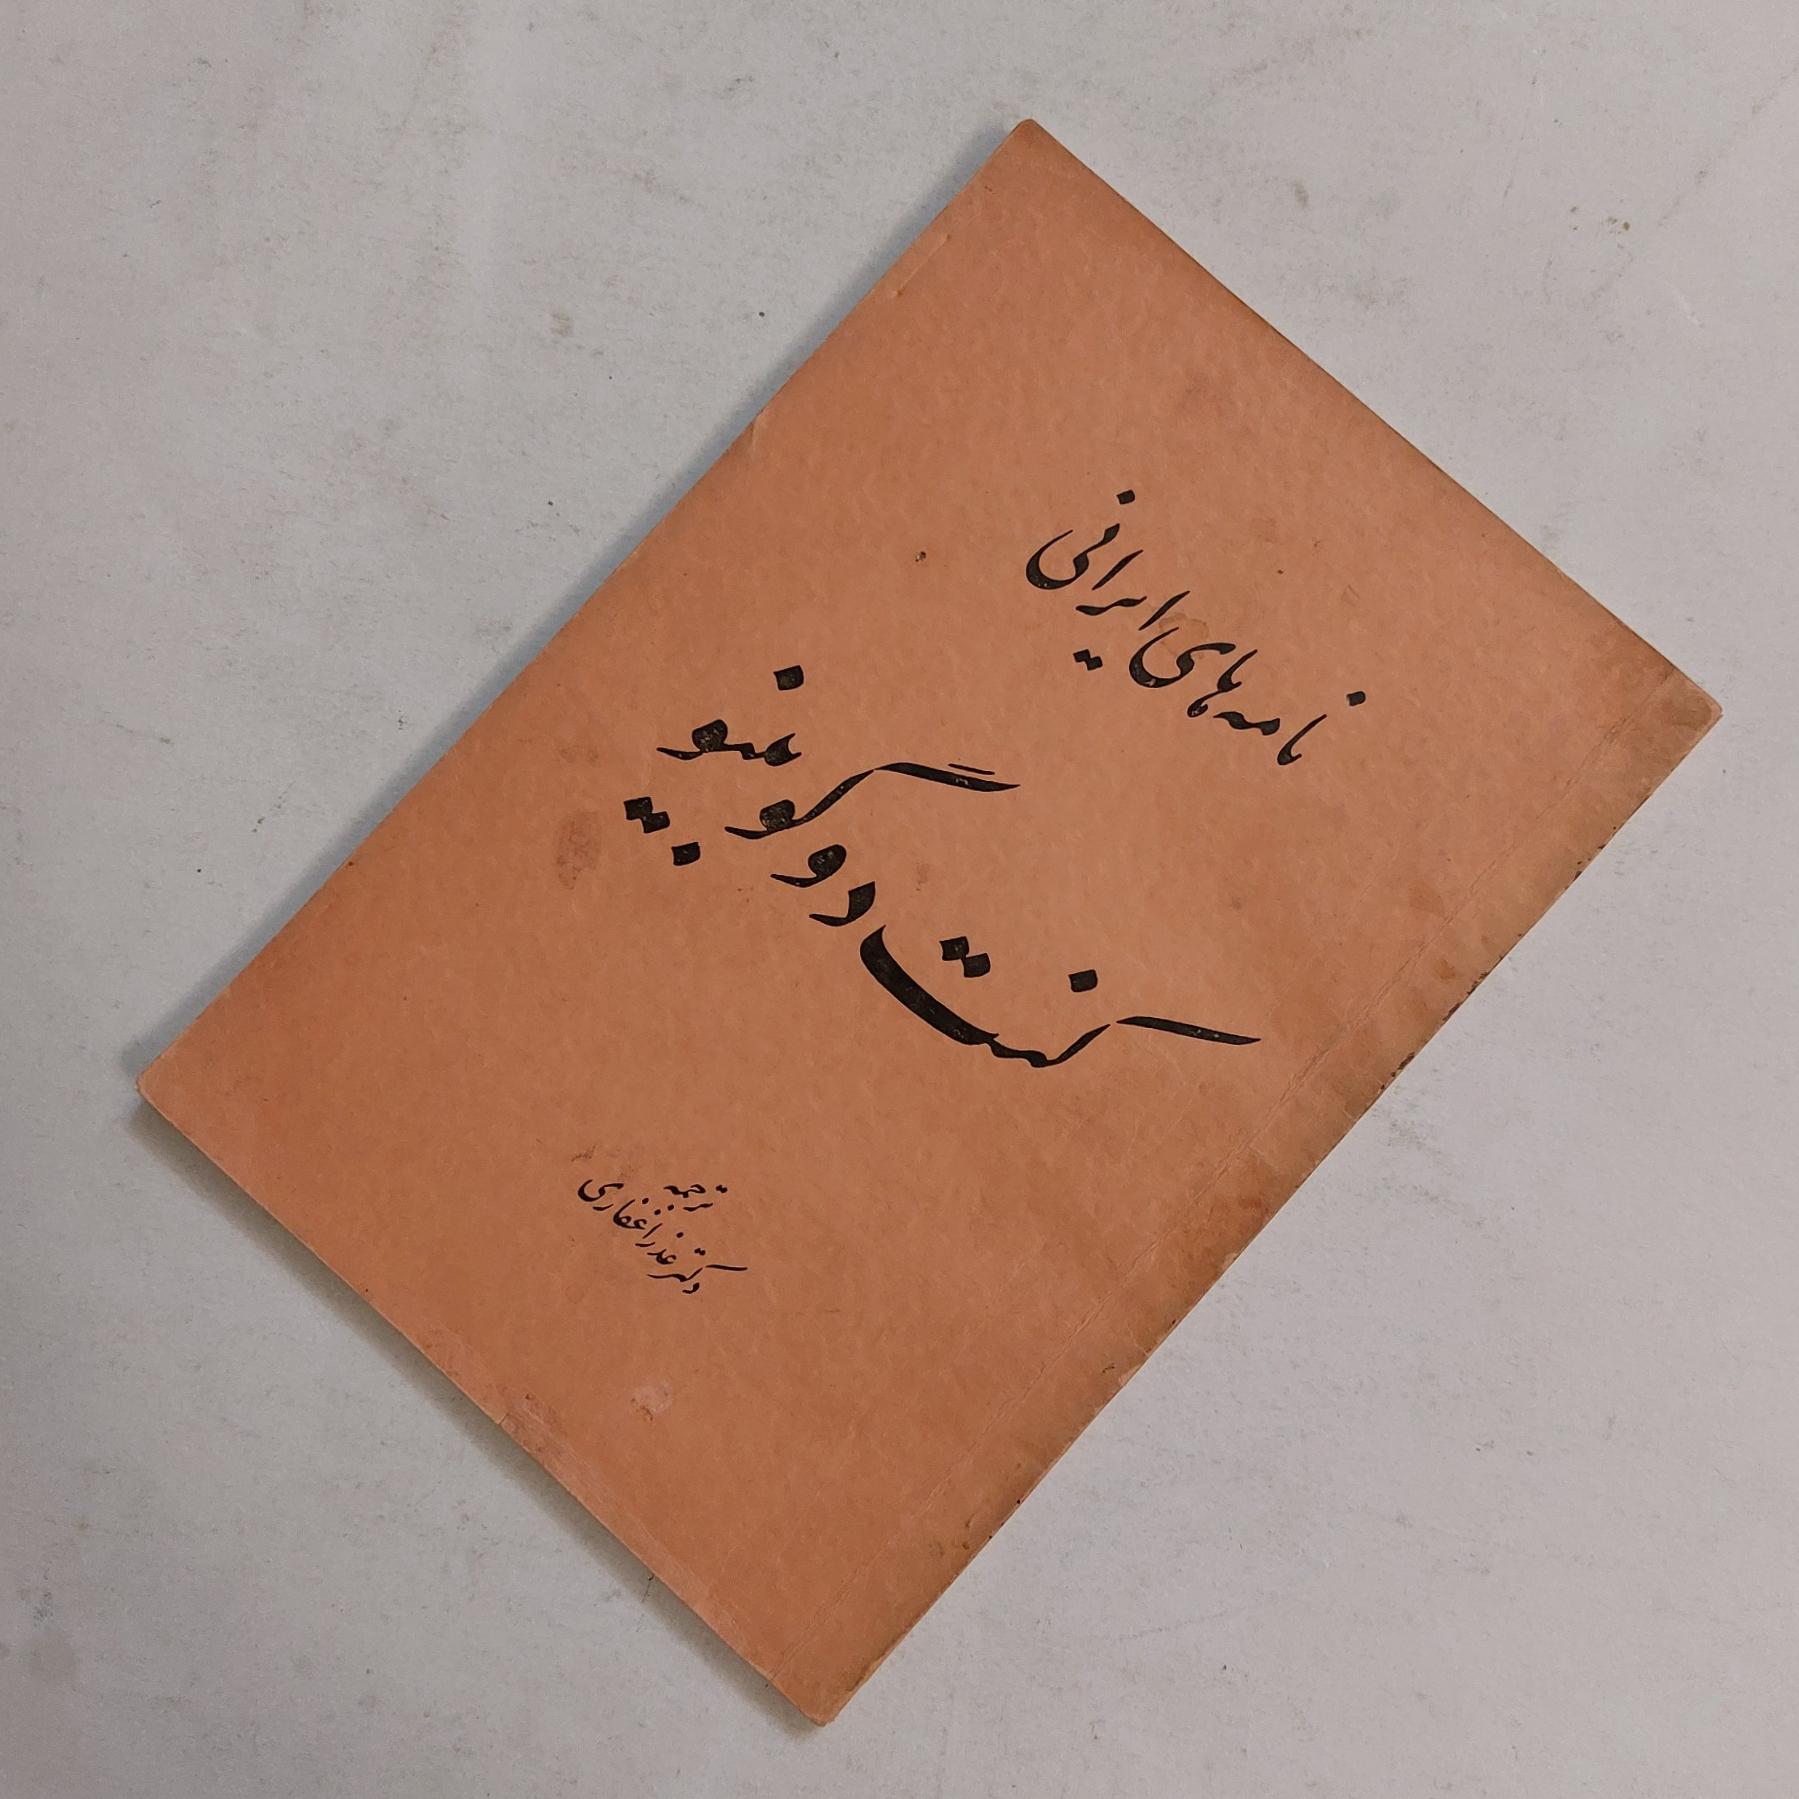 نامه‌های ایرانی
کنت دو گوبینو
ترجمه
دکتر عذرا غفاری